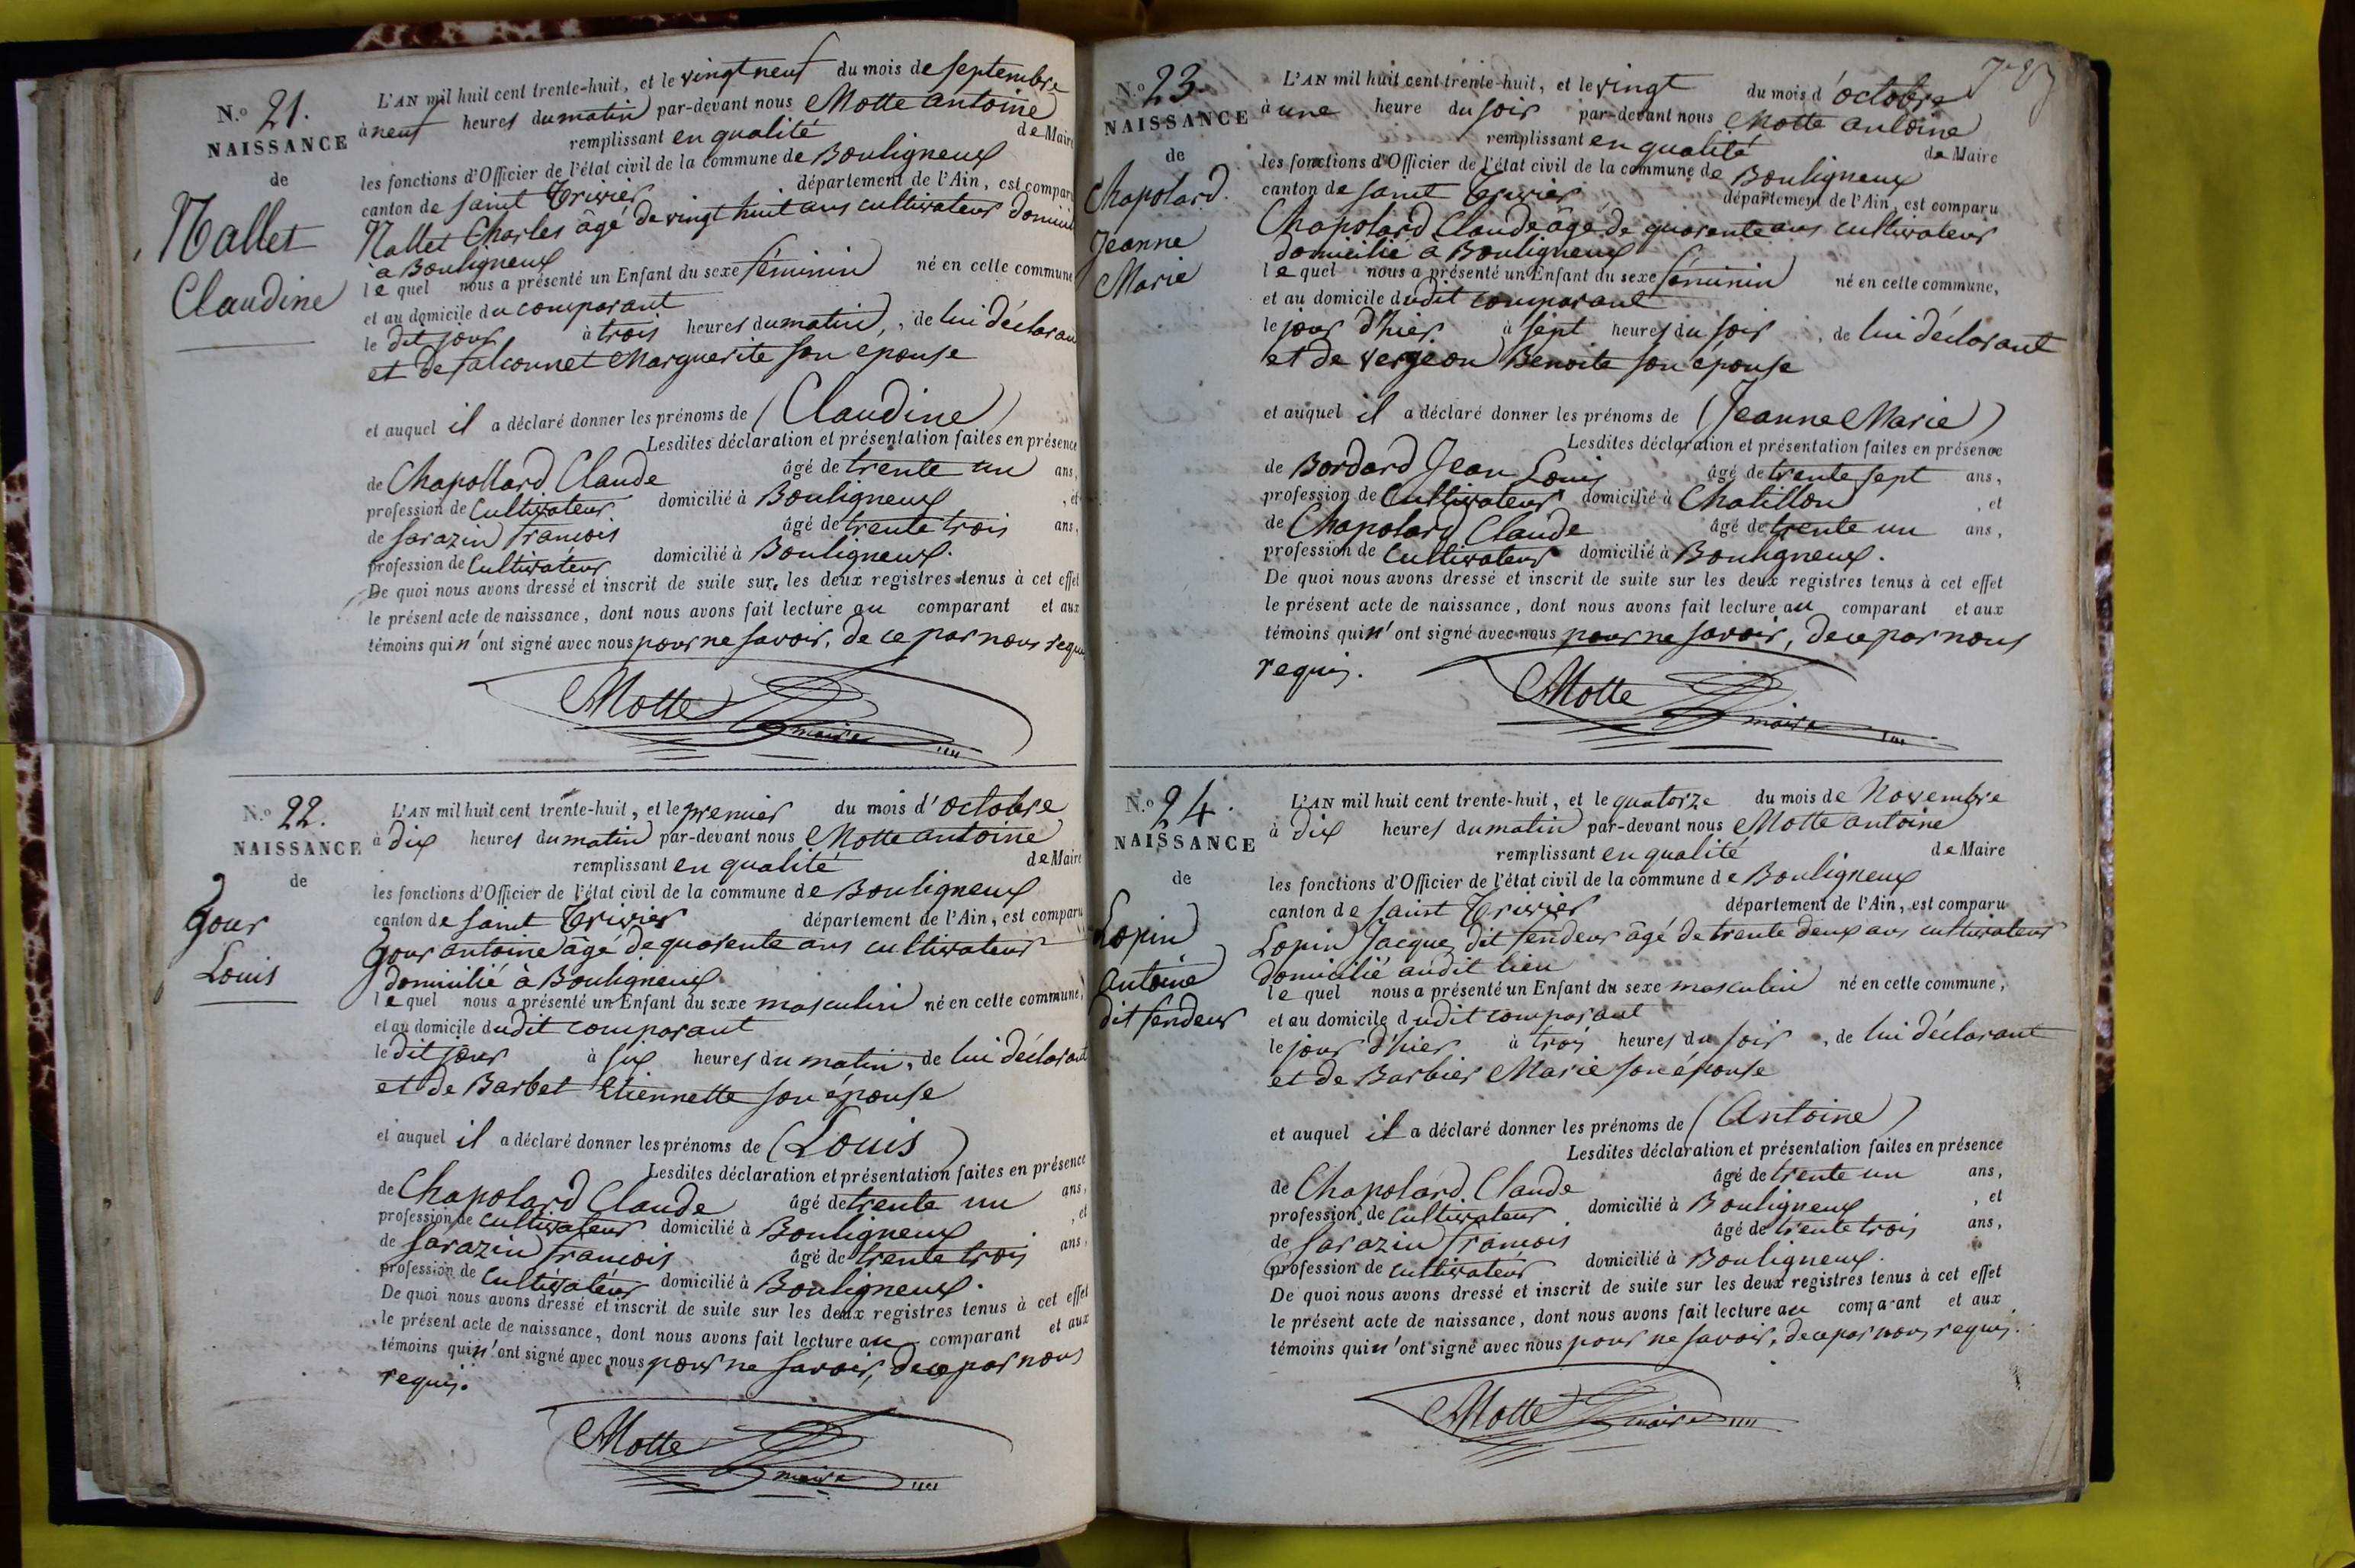 N.o 21.
NAISSANCE
de
Nallet
Claudine
L'AN mil huit cent trente-huit, et le vingt neuf du mois de septembre
à neuf heures du matin par-devant nous Motte antoine
remplissant en qualité de Maire
les fonctions d'Officier de l'état civil de la commune de Bouligneux
canton de saint Trivier département de l'Ain, est comparu
Nallet Charles âgé de vingt huit ans cultivateur domicil
à Bouligneux
le quel nous a présenté un Enfant du sexe féminin né en cette commune
et au domicile du comparant
le dit jour à trois heures du matin, de lui déclaran
et de falconnet Marguerite son epouse
et auquel il a déclaré donner les prénoms de (Claudine)
Lesdites déclaration et présentation faites en présence
de Chapollard Claude âgé de trente un ans,
profession de Cultivateur domicilié à Bouligneux, et
de sarazin francois âgé de trente trois ans,
profession de Cultivateur domicilié à Bouligneux.
De quoi nous avons dressé et inscrit de suite sur les deux registres tenus à cet effet
le présent acte de naissance, dont nous avons fait lecture au comparant et aux
témoins qui n'ont signé avec nous pour ne savoir, de ce par nous requi
Motte
maire
N.o 22.
NAISSANCE
de
Gour
Louis
L'AN mil huit cent trente-huit, et le premier du mois d'octobre
à dix heures du matin par-devant nous Motte antoine
remplissant en qualité de Maire
les fonctions d'Officier de l'état civil de la commune de Bouligneux
canton de saint Trivier département de l'Ain, est comparu
Gour antoine âgé de quarente ans cultivateur
domicilié à Bouligneux
le quel nous a présenté un Enfant du sexe masculin né en cette commune,
et au domicile dudit comparant
le dit jour à six heures du matin, de lui déclarant
et de Barbet Etiennette son épouse
et auquel il a déclaré donner les prénoms de (Louis)
Lesdites déclaration et présentation faites en présence
de Chapolard Claude âgé de trente un ans,
profession de cultivateur domicilié à Bouligneux, et
de sarazin francois âgé de trente trois ans,
profession de Cultivateur domicilié à Bouligneux.
De quoi nous avons dressé et inscrit de suite sur les deux registres tenus à cet effet
le présent acte de naissance, dont nous avons fait lecture au comparant et aux
témoins qui n'ont signé avec nous pour ne savoir, de ce par nous
requis.
Motte
maire
N.o 23.
NAISSANCE
de
Chapolard
Jeanne
Marie
L'AN mil huit cent trente-huit, et le vingt du mois d'octobre
à une heure du soir par-devant nous Motte antoine
remplissant en qualité de Maire
les fonctions d'Officier de l'état civil de la commune de Bouligneux
canton de saint Trivier département de l'Ain, est comparu
Chapolard Claude âgé de quarente ans cultivateur
domicilié à Bouligneux
le quel nous a présenté un Enfant du sexe féminin né en cette commune,
et au domicile dudit comparant
le jour d'hier à sept heures du soir, de lui déclarant
et de vergeon Benoite son épouse
et auquel il a déclaré donner les prénoms de (Jeanne Marie)
Lesdites déclaration et présentation faites en présence
de Bordard Jean Louis âgé de trente sept ans,
profession de Cultivateur domicilié à Chatillon, et
de Chapolard Claude âgé de trente un ans,
profession de Cultivateur domicilié à Bouligneux.
De quoi nous avons dressé et inscrit de suite sur les deux registres tenus à cet effet
le présent acte de naissance, dont nous avons fait lecture au comparant et aux
témoins qui n'ont signé avec nous pour ne savoir, de ce par nous
requis.
Motte
maire
N.o 24.
NAISSANCE
de
Lopin
antoine
dit fendeur
L'AN mil huit cent trente-huit, et le quatorze du mois de Novembre
à dix heures du matin par-devant nous Motte antoine
remplissant en qualité de Maire
les fonctions d'Officier de l'état civil de la commune de Bouligneux
canton de saint Trivier département de l'Ain, est comparu
Lopin Jacques dit fendeur âgé de trente deux ans cultivateur
domicilié audit lieu
le quel nous a présenté un Enfant du sexe masculin né en cette commune,
et au domicile dudit comparant
le jour d'hier à trois heures du soir, de lui déclarant
et de Barbier Marie son épouse
et auquel il a déclaré donner les prénoms de (Antoine)
Lesdites déclaration et présentation faites en présence
de Chapolard Claude âgé de trente un ans,
profession de Cultivateur domicilié à Bouligneux, et
de sarazin francois âgé de trente trois ans,
profession de cultivateur domicilié à Bouligneux.
De quoi nous avons dressé et inscrit de suite sur les deux registres tenus à cet effet
le présent acte de naissance, dont nous avons fait lecture au comparant et aux
témoins qui n'ont signé avec nous pour ne savoir, de ce par nous requis.
Motte
maire